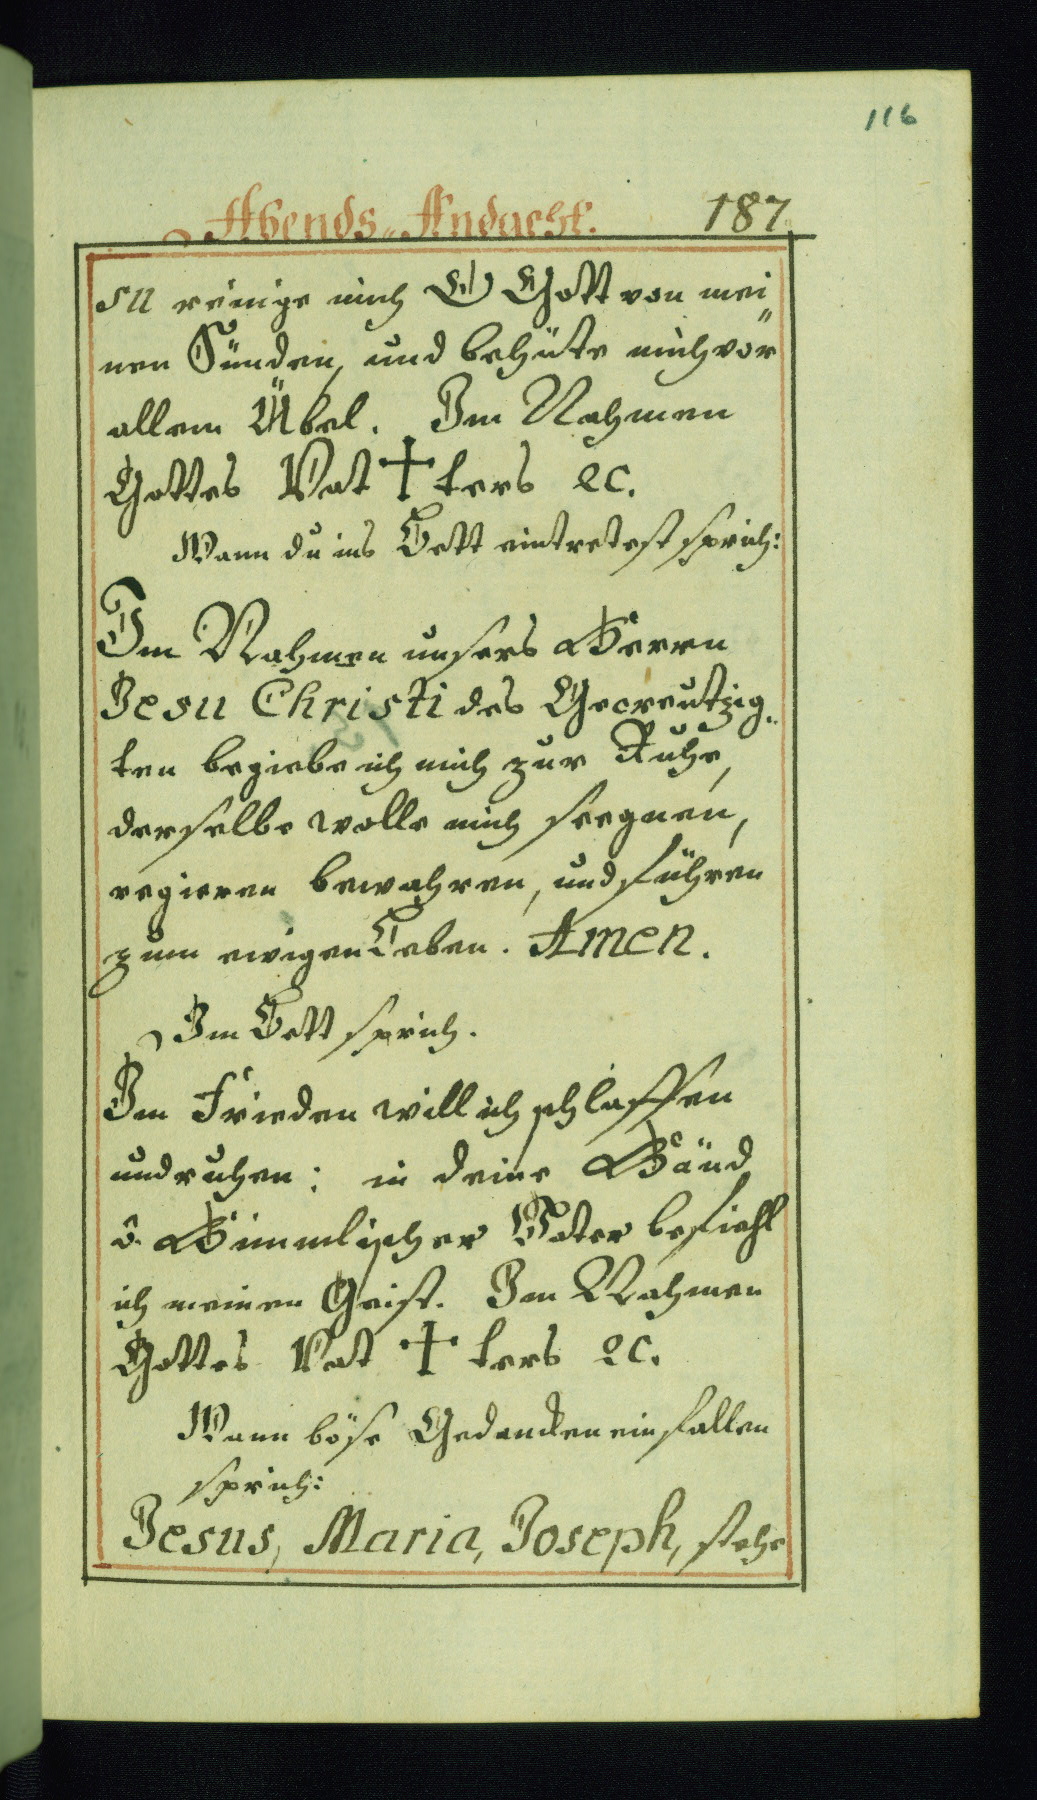 116
Abends-Andacht. 187.
su reinige mich O Gott von mei
nen Sünden, und behüte mich vor
allem Übel. Im Nahmen
Gottes Vat † ters ꝛc.
Wann du ins Bett eintretest sprich:
Im Nahmen unsers Herrn
Jesu Christi des Gecreutzig-
ten begiebe ich mich zur Ruhe,
derselbe wolle mich seegnen,
regieren bewahren, und führen
zum ewigen Leben. Amen.
Im Bett sprich.
Im Frieden will ich schlaffen
und ruhen: in deine Händ
ô Himmlischer Vater befiehl
ich meinen Geist. Im Nahmen
Gottes Vat † ters ꝛc.
Wann böse Gedancken einfallen
sprich:
Jesus, Maria, Joseph, stehe